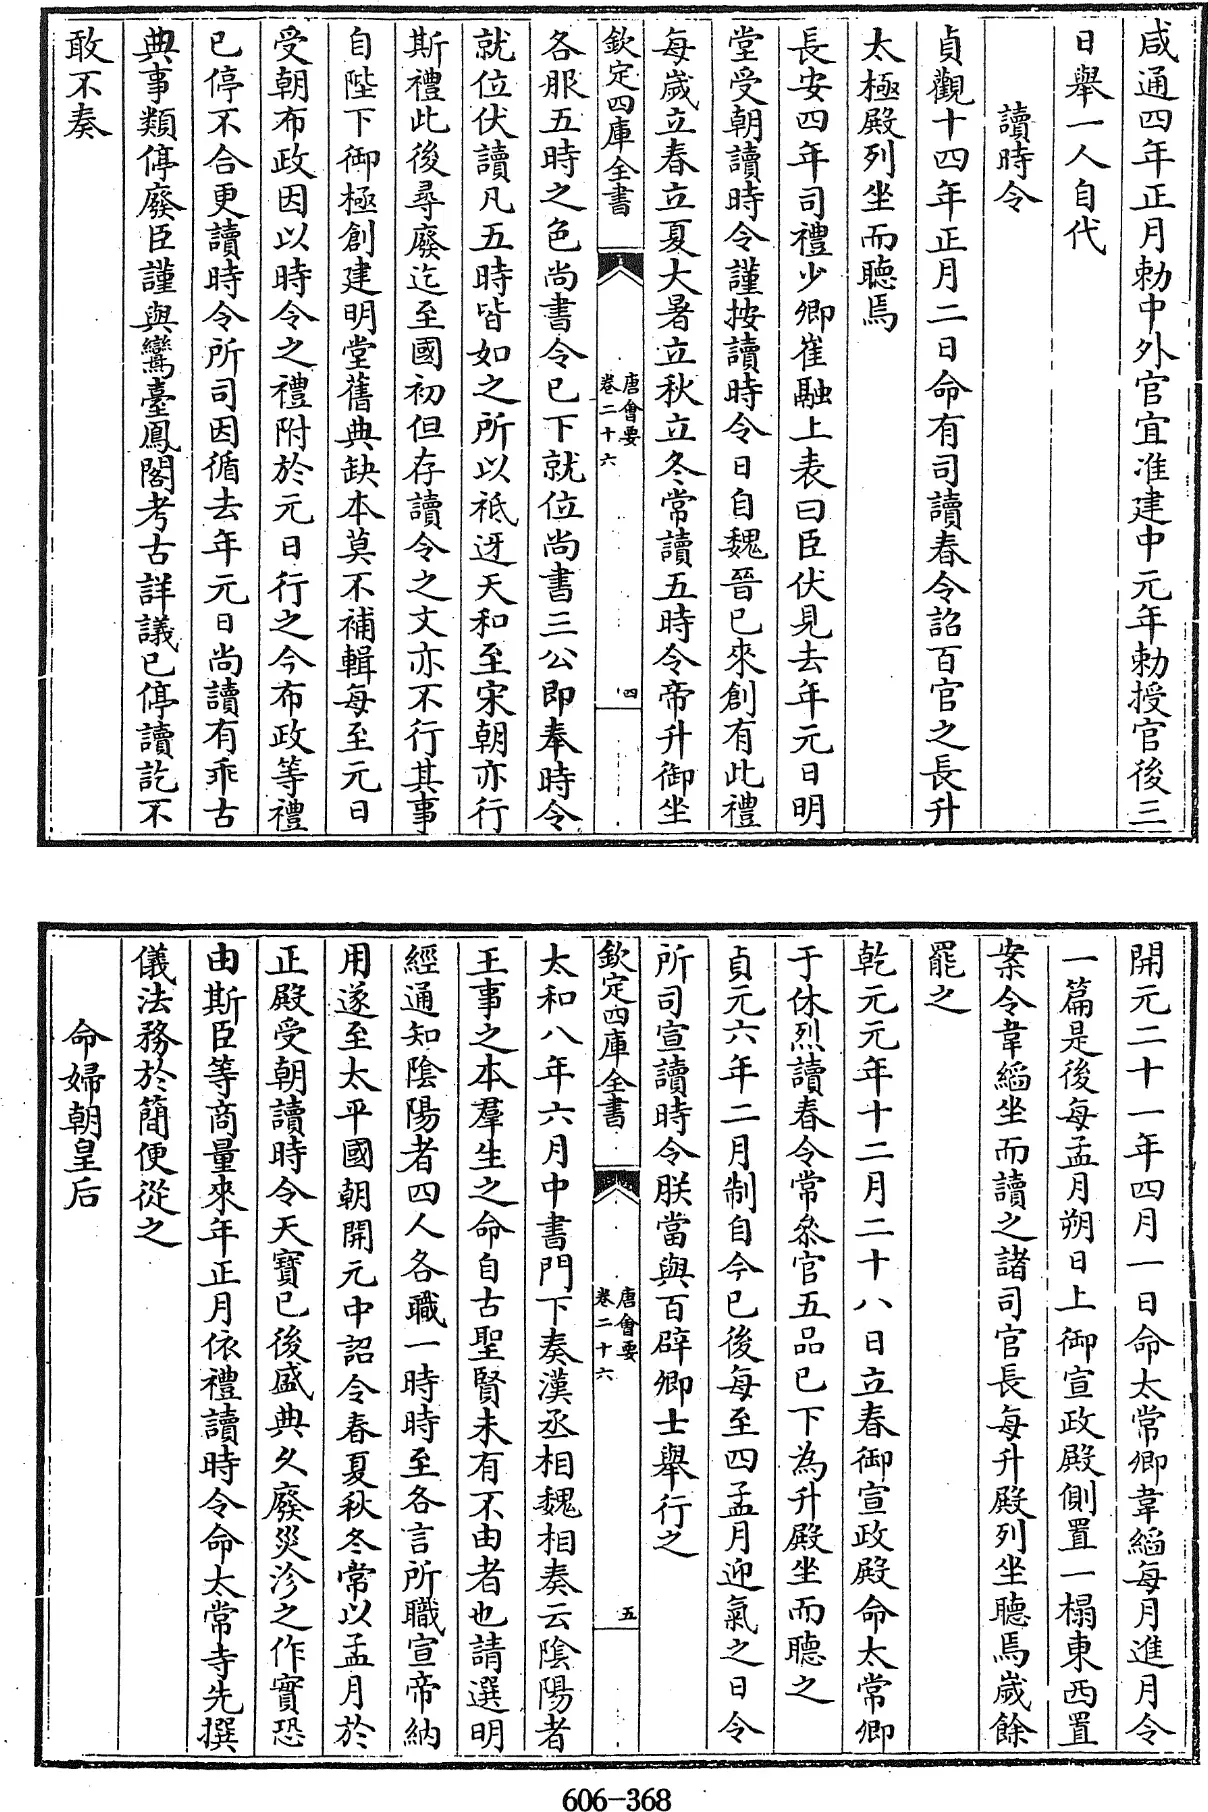 咸通四年正月勅中外官宜准建中元年勅授官後三
日舉一人自代
讀時令
貞觀十四年正月二日命有司讀春令詔百官之長升
太極殿列坐而聽焉
長安四年司禮少卿崔融上表曰臣伏見去年元日明
堂受朝讀時令謹按讀時令日自魏晉已來創有此禮
每歲立春立夏大暑立秋立冬常讀五時令帝升御坐
欽定四庫全書
唐會要
卷二十六
四
各服五時之色尚書令已下就位尚書三公即奉時令
就位伏讀凡五時皆如之所以祗迓天和至宋朝亦行
斯禮此後尋廢迄至國初但存讀令之文亦不行其事
自陛下御極創建明堂舊典缺本莫不補輯每至元日
受朝布政因以時令之禮附於元日行之今布政等禮
已停不合更讀時令所司因循去年元日尚讀有乖古
典事類停廢臣謹與鸞臺鳳閣考古詳議已停讀訖不
敢不奏
開元二十一年四月一日命太常卿韋縚每月進月令
一篇是後每孟月朔日上御宣政殿側置一榻東西置
案令韋縚坐而讀之諸司官長每升殿列坐聽焉歲餘
罷之
乾元元年十二月二十八日立春御宣政殿命太常卿
于休烈讀春令常叅官五品已下為升殿坐而聽之
貞元六年二月制自今已後每至四孟月迎氣之日令
所司宣讀時令朕當與百辟卿士舉行之
欽定四庫全書
唐會要
卷二十六
五
太和八年六月中書門下奏漢丞相魏相奏云陰陽者
王事之本羣生之命自古聖賢未有不由者也請選明
經通知陰陽者四人各職一時時至各言所職宣帝納
用遂至太平國朝開元中詔令春夏秋冬常以孟月於
正殿受朝讀時令天寶已後盛典久廢災沴之作實恐
由斯臣等商量來年正月依禮讀時令命太常寺先撰
儀法務於簡便從之
命婦朝皇后
606-368